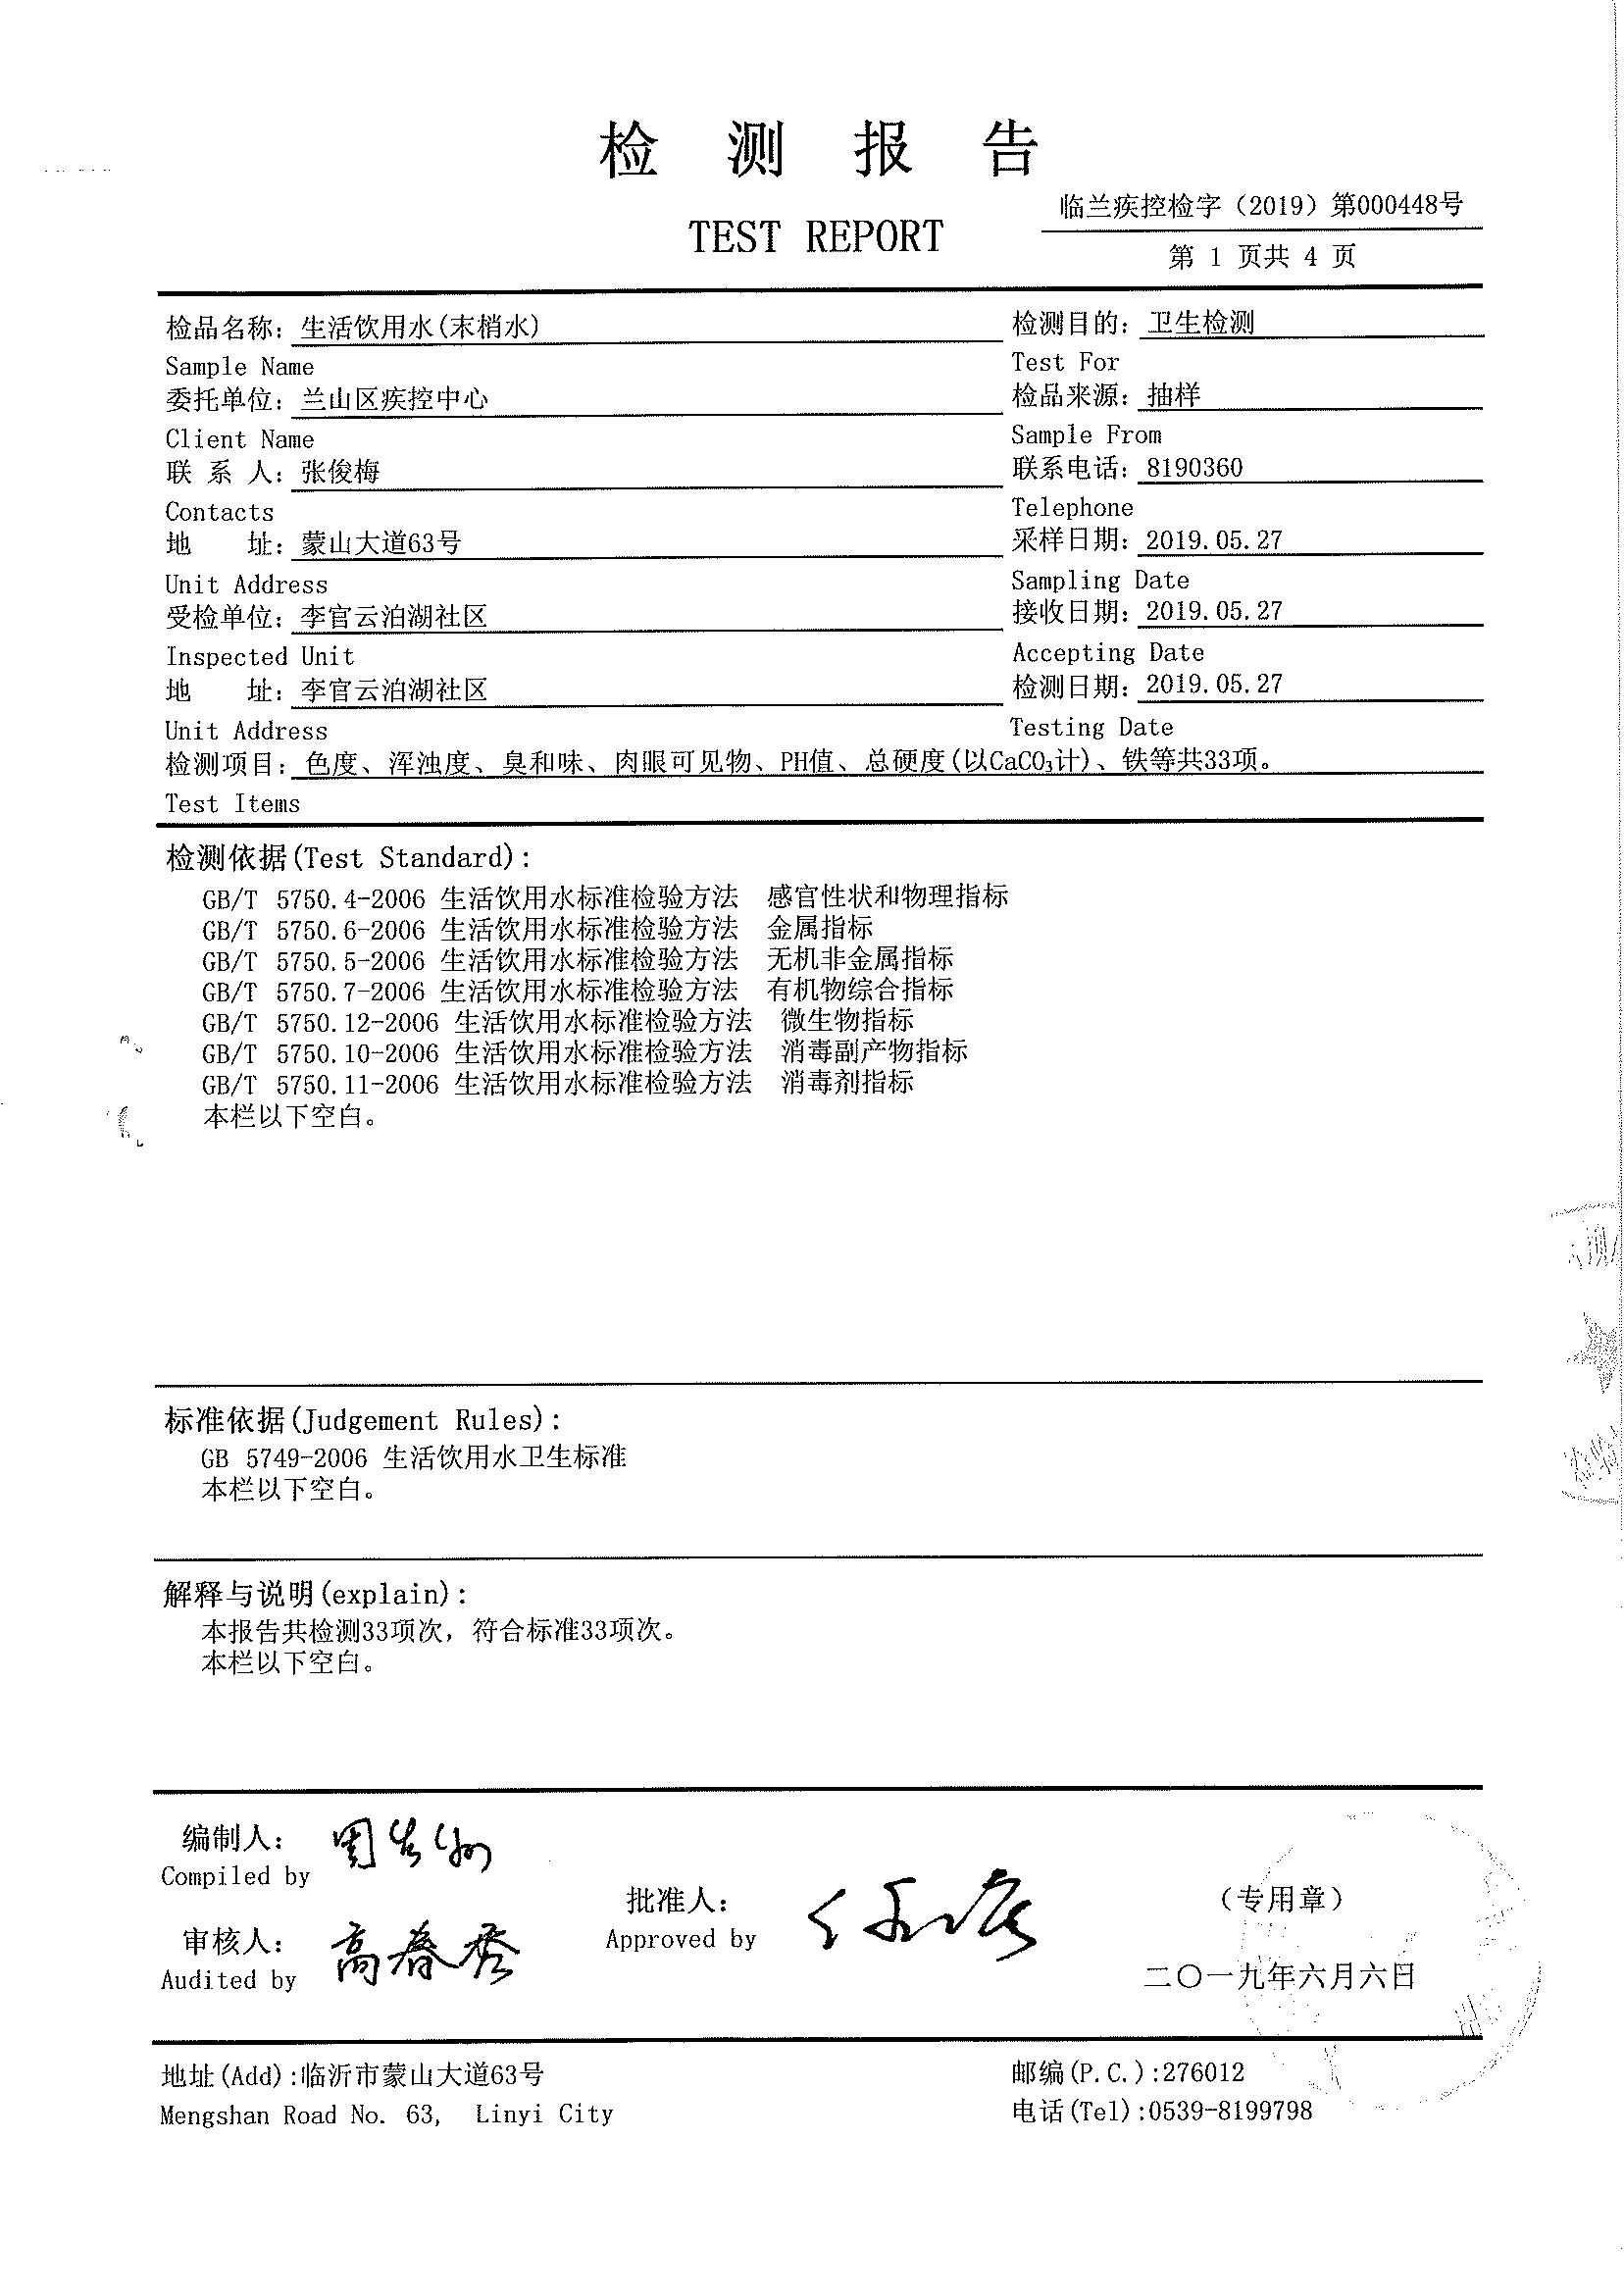 检测报告
临兰疾控检字（2019）第000448号
TEST REPORT
第 1 页共 4 页
检品名称：生活饮用水(末梢水) 检测目的：卫生检测
Sample Name Test For
委托单位：兰山区疾控中心 检品来源：抽样
Client Name Sample From
联 系 人：张俊梅 联系电话：8190360
Contacts Telephone
地 址：蒙山大道63号 采样日期：2019.05.27
Unit Address Sampling Date
受检单位：李官云泊湖社区 接收日期：2019.05.27
Inspected Unit Accepting Date
地 址：李官云泊湖社区 检测日期：2019.05.27
Unit Address Testing Date
检测项目：色度、浑浊度、臭和味、肉眼可见物、PH值、总硬度(以CaCO₃计)、铁等共33项。
Test Items
检测依据(Test Standard):
GB/T 5750.4-2006 生活饮用水标准检验方法 感官性状和物理指标
GB/T 5750.6-2006 生活饮用水标准检验方法 金属指标
GB/T 5750.5-2006 生活饮用水标准检验方法 无机非金属指标
GB/T 5750.7-2006 生活饮用水标准检验方法 有机物综合指标
GB/T 5750.12-2006 生活饮用水标准检验方法 微生物指标
GB/T 5750.10-2006 生活饮用水标准检验方法 消毒副产物指标
GB/T 5750.11-2006 生活饮用水标准检验方法 消毒剂指标
本栏以下空白。
标准依据(Judgement Rules):
GB 5749-2006 生活饮用水卫生标准
本栏以下空白。
解释与说明(explain):
本报告共检测33项次，符合标准33项次。
本栏以下空白。
编制人：
Compiled by
批准人：
（专用章）
Approved by
审核人：高春秀
Audited by
二〇一九年六月六日
地址(Add):临沂市蒙山大道63号 邮编(P.C.):276012
Mengshan Road No. 63, Linyi City 电话(Tel):0539-8199798